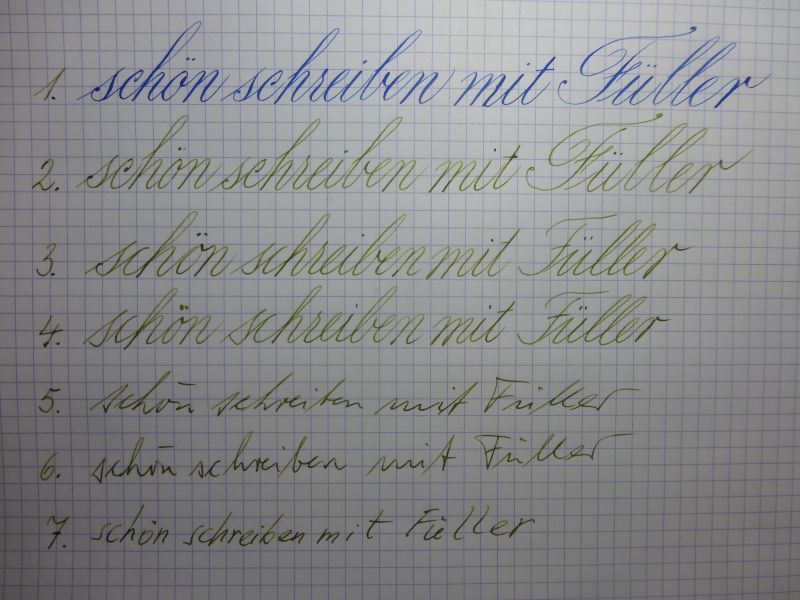 1. schön schreiben mit Füller
2. schön schreiben mit Füller
3. schön schreiben mit Füller
4. schön schreiben mit Füller
5. schön schreiben mit Füller
6. schön schreiben mit Füller
7. schön schreiben mit Füller